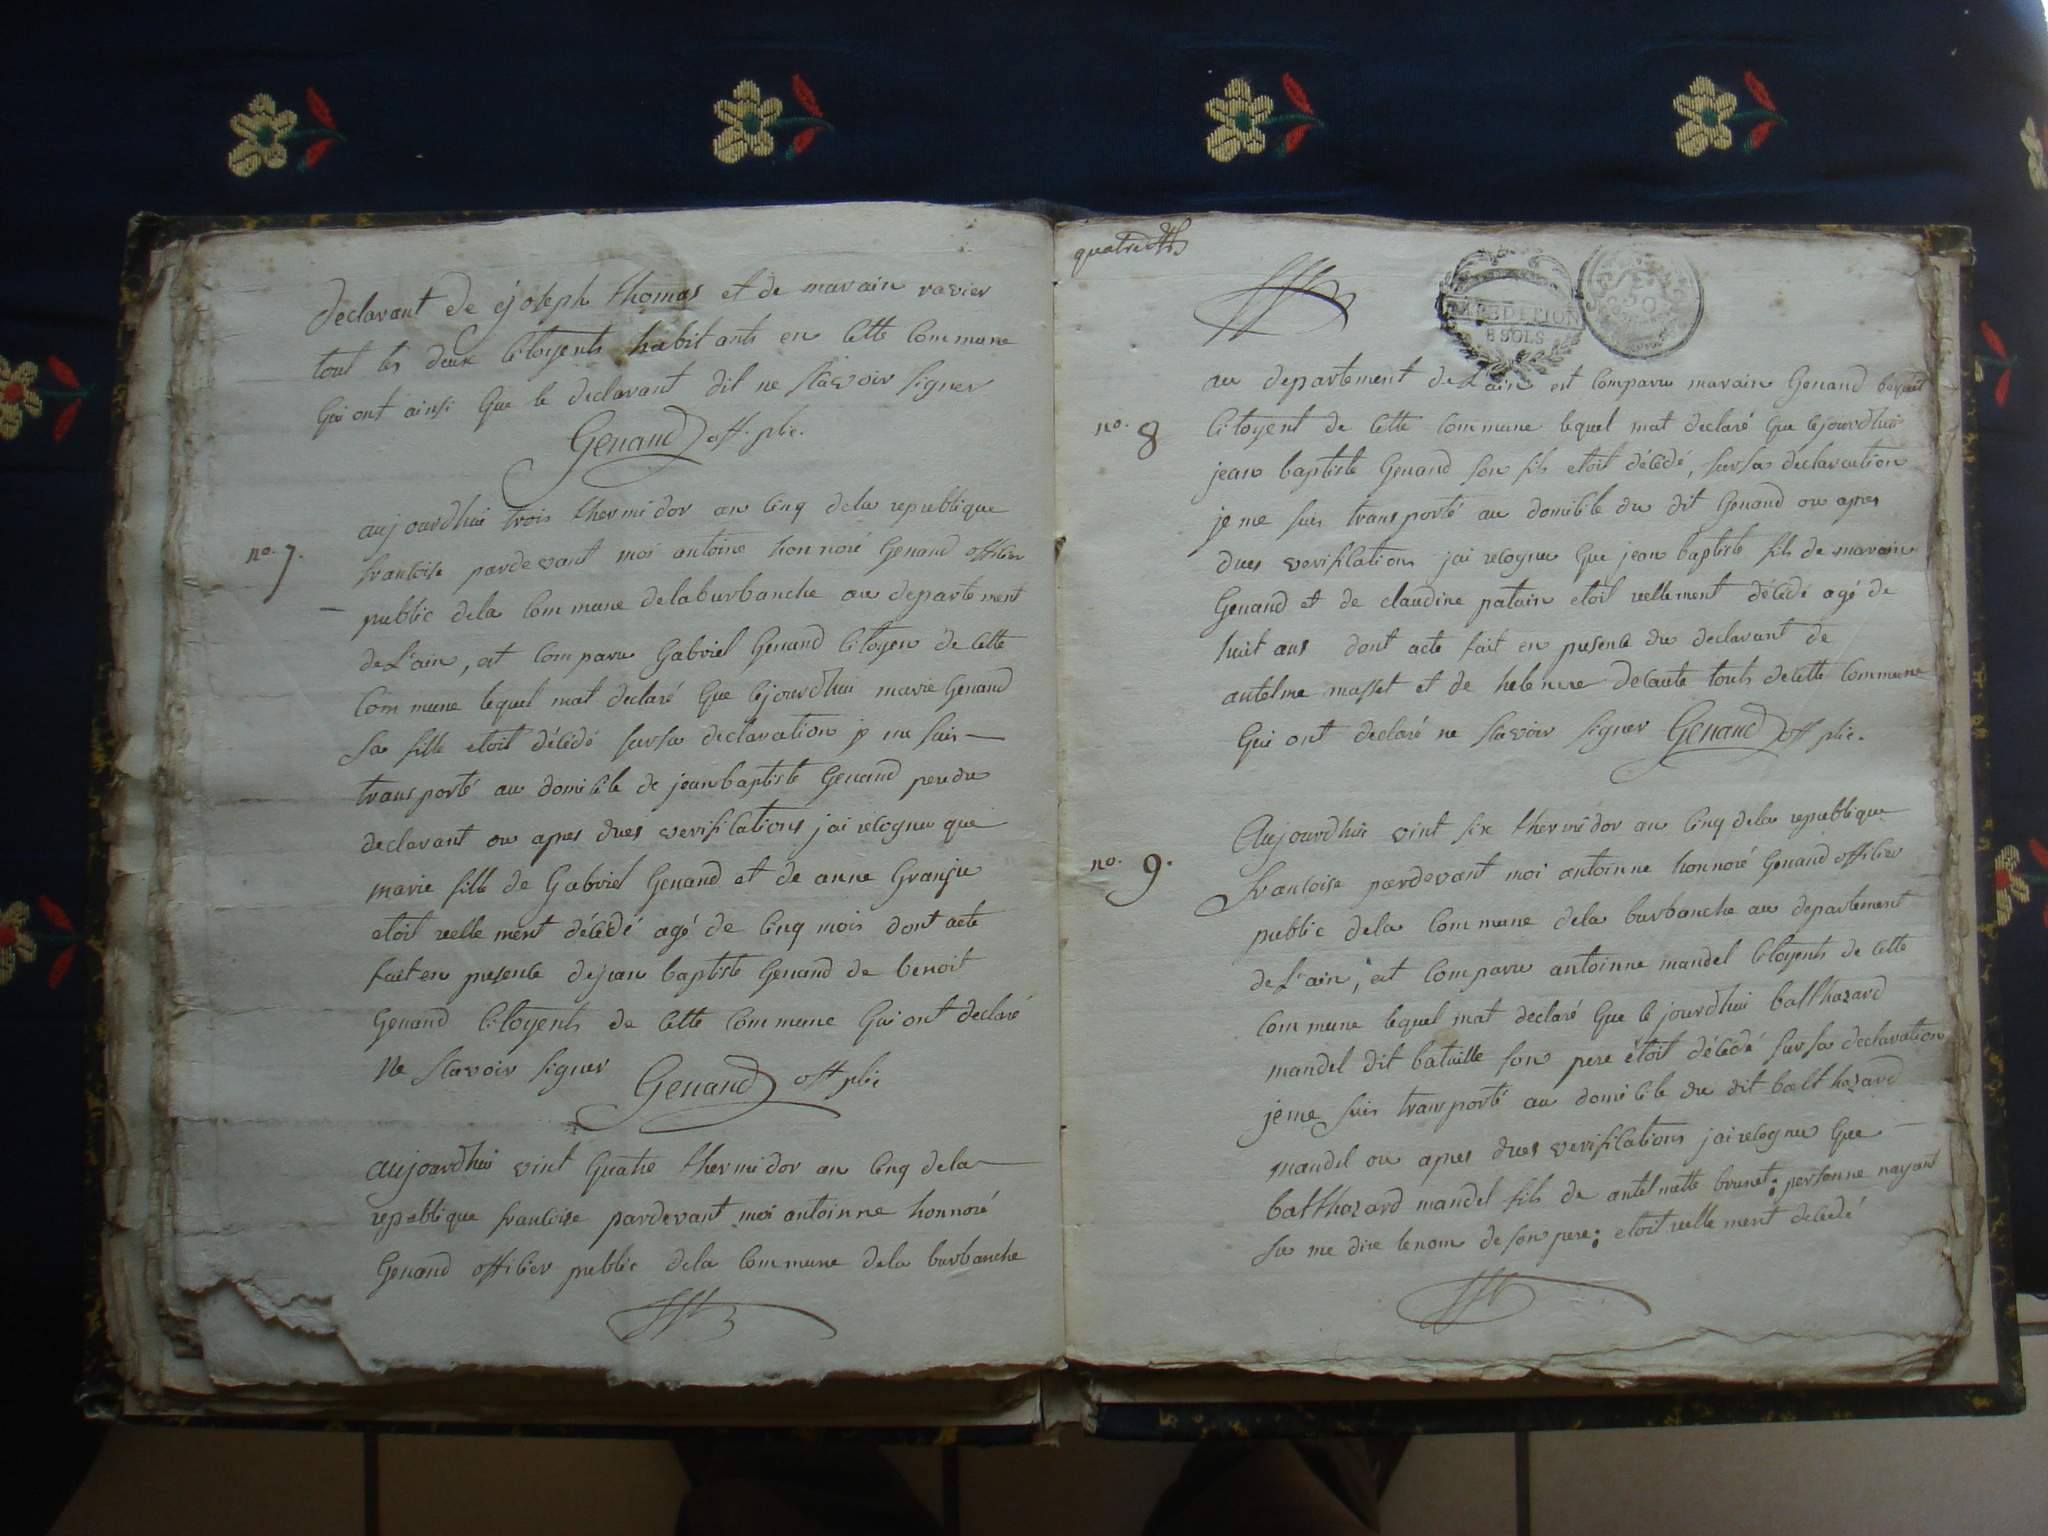 declarant de joseph thomas et de marain ravier
tout les deux citoyents habitants en cette commune
qui ont ainsi que le declarant dit ne scavoir signer
Genand off. plic.
no. 7.
aujourdhui trois thermidor an cinq dela republique
francoise pardevant moi antoine honnoré Genand officier
public dela commune delaburbanche au departement
de L'ain, est comparu Gabriel Genand citoyen de cette
commune lequel mat declaré que cejourdhui marie Genand
sa fille etoit décédé sursa declaration je me suis
transporté au domicile de jeanbaptiste Genand pere du
declarant ou apres dues verifications jai recognu que
marie fille de Gabriel Genand et de anne Granju
etoit reellement décédé agé de cinq mois dont acte
fait en presence dejean baptiste Genand de benoit
Genand citoyents de cette commune qui ont declaré
ne scavoir signer Genand off plic
aujourdhui vint quatre thermidor an cinq dela
republique francoise pardevant moi antoinne honnoré
Genand officier public dela commune dela burbanche
quatre
EXPEDITION
8 SOLS
au departement de L'ain est comparu marain Genand
no. 8
citoyent de cette commune lequel mat declaré que cejourdhui
jean baptiste Genand son fils etoit décédé, sursa declaration
je me suis transporté au domicile du dit Genand ou apres
dues verifications jai recognu que jean baptiste fils de marain
Genand et de claudine patain etoit reellement décédé agé de
huit ans dont acte fait en presence du declarant de
antelme masset et de helenne decaute touts decette commune
qui ont declaré ne scavoir signer Genand off plic.
no. 9.
Aujourdhui vint six thermidor an cinq dela republique
francoise pardevant moi antoinne honnoré Genand officier
public dela commune dela burbanche au departement
de L'ain, est comparu antoinne mandel citoyents de cette
commune lequel mat declaré que le jourdhui balthazard
mandel dit bataille son pere étoit décédé sursa declaration
jeme suis transporté au domicile du dit balthazard
mandel ou apres dues verifications jai recognu que
balthazard mandel fils de antelmette brunet; personne nayant
su me dire lenom deson pere; etoit reellement decédé